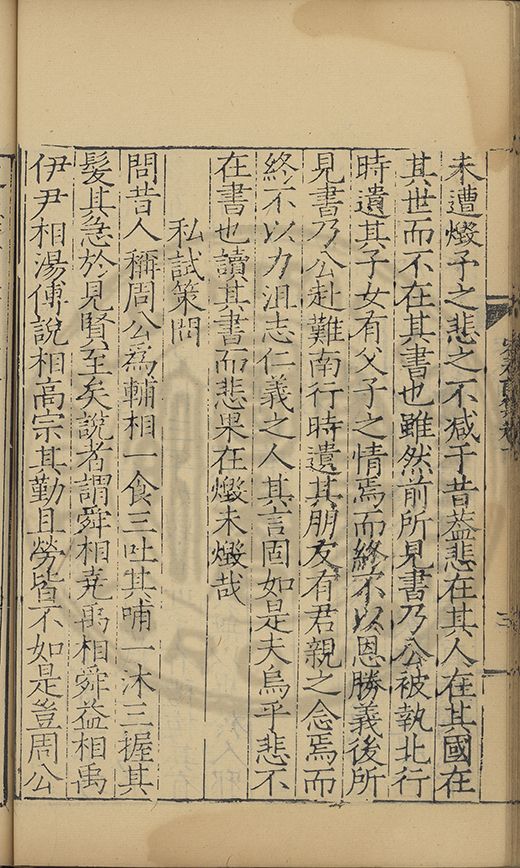 未遭燬予之悲之不減于昔葢悲在其人在其國在
其世而不在其書也雖然前所見書乃公被執北行
時遺其子女有父子之情焉而終不以恩勝義後所
見書乃公赴難南行時遺其朋友有君親之念焉而
終不以力沮志仁義之人其言固如是夫烏乎悲不
在書也讀其書而悲果在燬未燬哉
私試策問
問昔人稱周公爲輔相一食三吐其哺一沐三握其
髮其急於見賢至矣說者謂舜相堯禹相舜益相禹
伊尹相湯傅說相高宗其勤且勞皆不如是豈周公